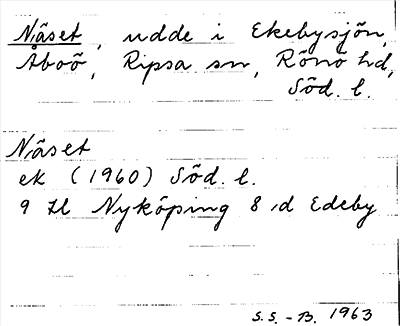 Näset, udde i Ekebysjön,
Åboö, Ripsa sn, Rönö hd,
Söd. l.
Näset
ek (1960) Söd. l.
9 H Nyköping 8 d Edeby
S.S. - B. 1963